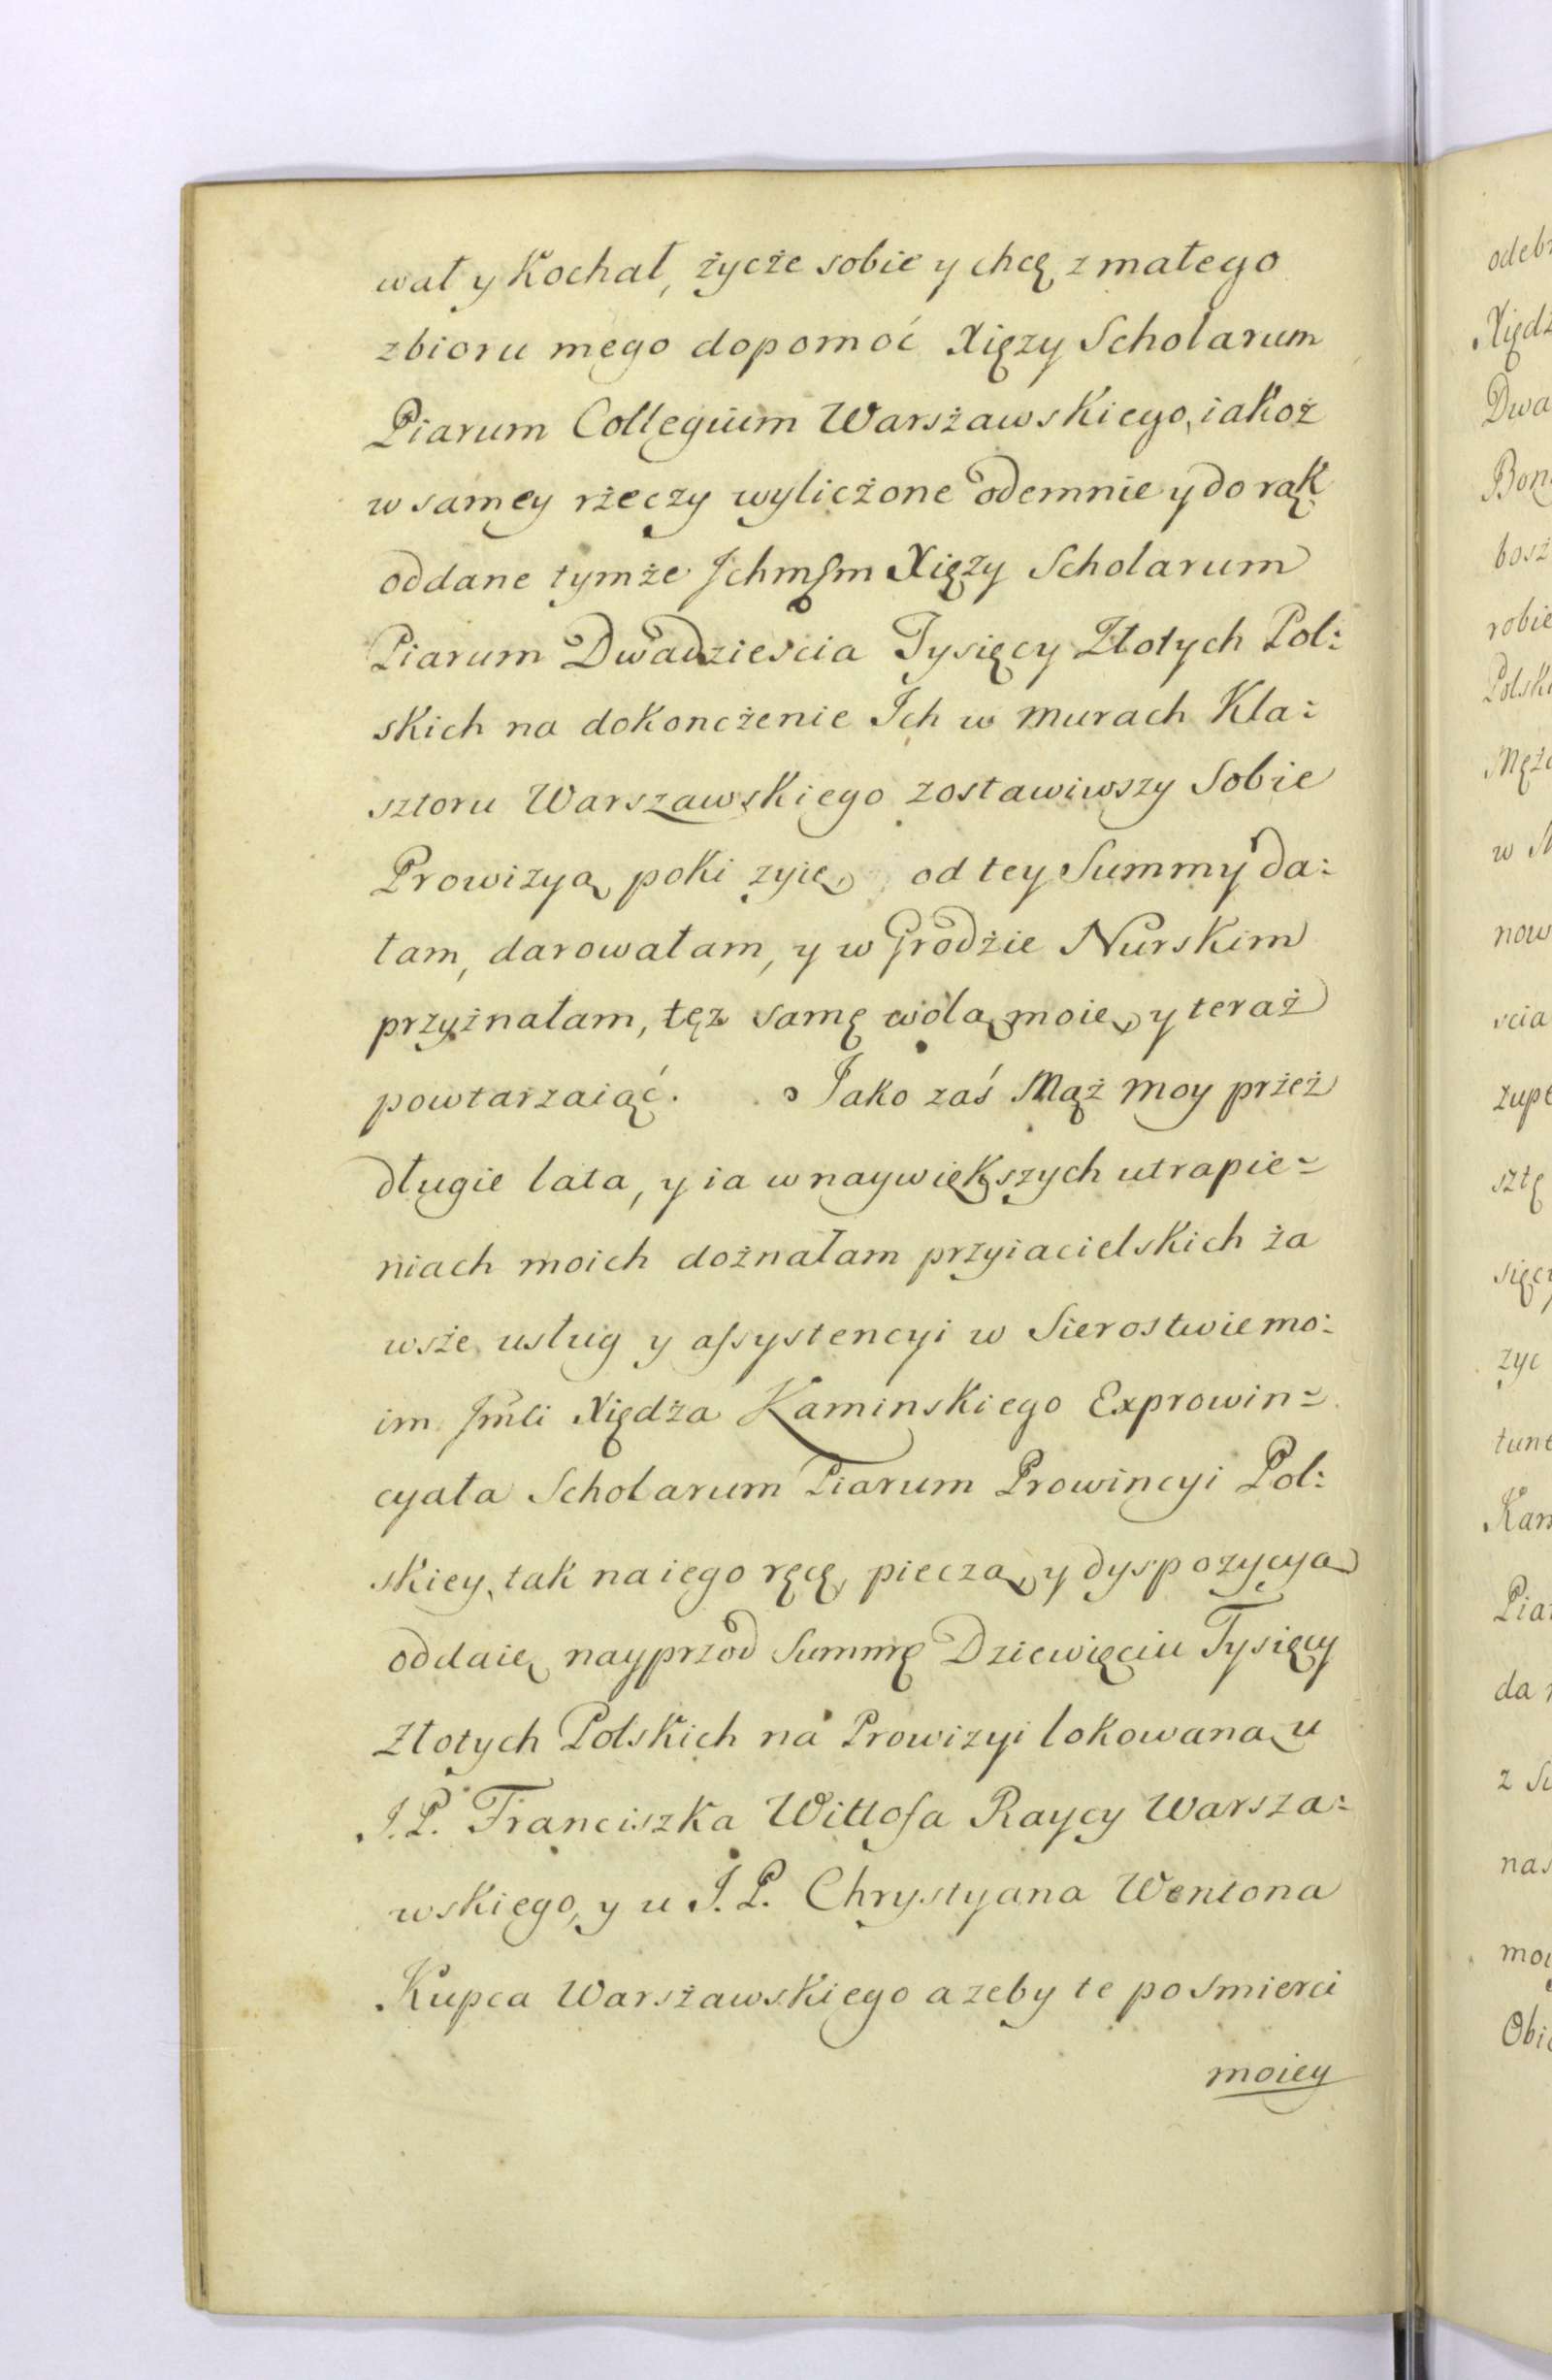 wał y Kochał, życże sobie y chcę z małego
zbioru mego dopomoć Xięzy Scholarum
Piarum Collegium Warsżawskiego, iakoż
w samey rżeczy wyliczone odemnie y do rąk
oddane tymże Ichmſm Xięzy Scholarum
Piarum Dwadziescia Tysięcy Złotych Pol:
skich na dokonczżenie Ich w murach Kla:
sztoru Warszawskiego zostawiwszy Sobie
Prowizyą poki zyię, od tey Summy da:
łam, darowałam, y w Grodżie Nurskim
przyżnałam, tęz samę wolą moię, y teraż
powtarzaiąć. Jako zaś Mąż moy prżeż
długie lata, y ia w naywiększych utrapie=
niach moich dożnałam przyiacielskich ża
wsże usług y aſsystencyi w Sierostwie mo:
im Jmći Xiędża Kaminskiego Exprowin=
cyała Scholarum Piarum Prowincyi Pol:
skiey, tak na iego ręcę, pieczą, y dyspozycyą
oddaię nayprzod Summę Dziewięciu Tysięcy
Złotych Polskich na Prowizyi lokowaną u
J.P. Franciszka Wittoſa Raycy Warsza:
wskiego, y u J.P. Chrystyana Wentona
Kupca Warsżawskiego azeby te po smierci
moiey
odeb
Xiędż
Dwa
Bon
bosż
robie
Polsk
Męż
w
now
scia
zupe
sztę
sięc
zyc
tune
Kam
Piar
da
z
nas
moi
Obi